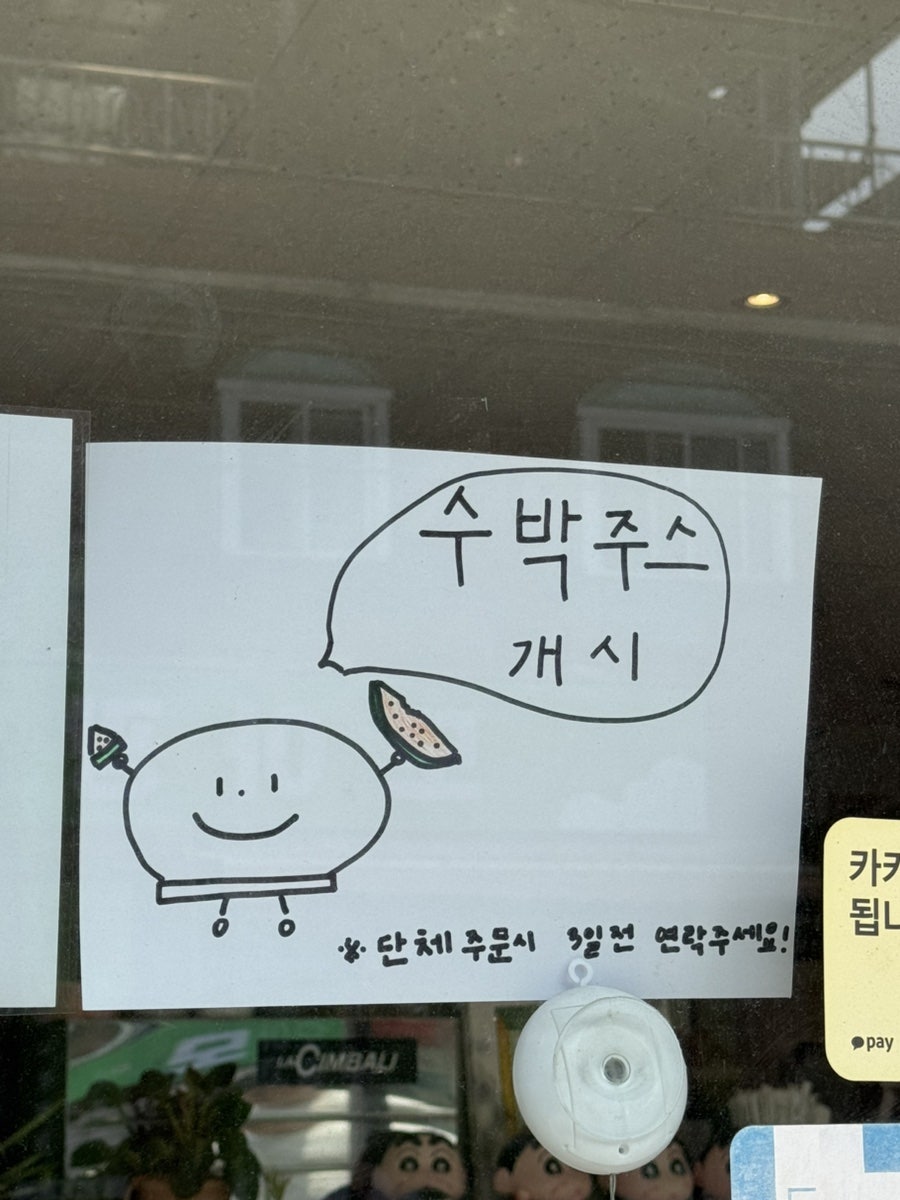 수박주스
개시
※ 단체 주문시 3일전 연락주세요!
카카
됩니
pay
LA CIMBALI